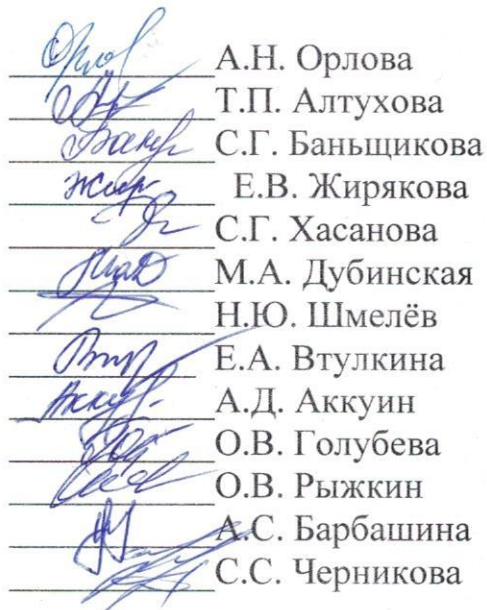 А.Н. Орлова
Т.П. Алтухова
С.Г. Баньщикова
Е.В. Жирякова
С.Г. Хасанова
М.А. Дубинская
Н.Ю. Шмелёв
Е.А. Втулкина
А.Д. Аккуин
О.В. Голубева
О.В. Рыжкин
А.С. Барбашина
С.С. Черникова